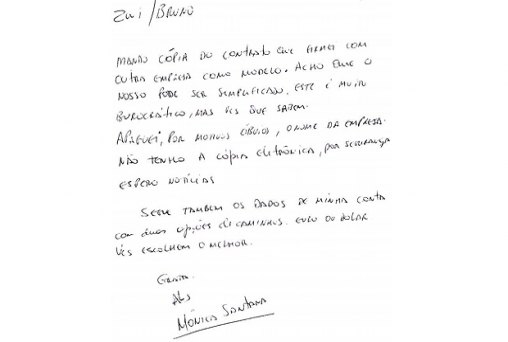 Zui/BRUNO
MANDO CÓPIA DO CONTRATO QUE FIRMEI COM
OUTRA EMPRESA COMO MODELO. ACHO QUE O
NOSSO PODE SER SIMPLIFICADO. ESTE É MUITO
BUROCRÁTICO, MAS VCS QUE SABEM.
APAGUEI, POR MOTIVOS ÓBVIOS, O NOME DA EMPRESA.
NÃO TENHO A CÓPIA ELETRÔNICA, POR SEGURANÇA
ESPERO NOTÍCIAS
SEGUE TAMBÉM OS DADOS DE MINHA CONTA
COM DUAS OPÇÕES DE CAMINHOS. EURO OU DÓLAR
VCS ESCOLHEM O MELHOR.
GRATA.
ABS
MÔNICA SANTANA